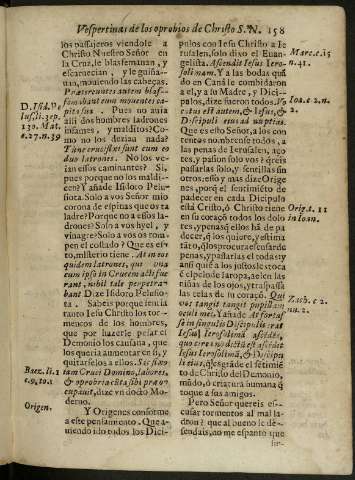 Vespertinas de los oprobios de Christo S. N. 158
los passajeros viendole a
Christo Nuestro Señor en
la Cruz, le blasfemauan, y
escarnecian, y le guiña-
uan, mouiendo las cabeças.
Prætereuntes autem blas-
femabant eum mouentes ca-
pita sua. Pues no auia
D. Isid. P.
lus. li. 3. ep.
130. Mat.
c. 27. n. 39
alli dos hombres ladrones
infames, y malditos? Co-
mo no los dezian nada?
Tunc crucifixi sunt cum eo
duo latrones. No los ve-
ian essos caminantes? Si,
pues porque no los maldi-
cen? Y añade Isidoro Pelu-
siota. Solo a vos Señor mio
corona de espinas que os ta
ladre? Porque no a essos la-
drones? Solo a vos hyel, y
vinagre? Solo a vos os rom-
pen el costado? Que es es-
to, misterio tiene. At in eos
quidem latrones, que vna
cum ipso in Crucem acti fue
rant, nihil tale perpetra-
bant Dize Isidoro Pelusio-
ta. Sabeis porque senia
tanto Iesu Christo los tor-
mentos de los hombres,
que por hazerle pesarle
Demonio los causaua, que
los queria aumentar en si, y
quitarselos a ellos. Sic flax
tam Cruci Domino, labores,
Baez. li. 1
c. 9. to. 1
& oprobria esta sibi præoc-
cupauit, dize vn docto Mo-
derno.
Origen.
Y Origenes conforme
a este pensamiento. Que a-
uiendo ido todos los Dici-
pulos con Iesu Christo a Ie
rusalen, solo dixo el Euan-
gelista. Ascendit Iesus Iero-
solimam. Y a las bodas quā
Marc. c. 15
n. 41.
do en Canà le combidaron
a el, y a su Madre, y Dici-
pulos, dize fueron todos. Vo
catus est autem, & Iesus, &
Discipuli eius ad nuptias.
Ioa. c. 2. n.
2.
Que es esto Señor, a los con
tentos nombraste todos, a
las penas de Ierusalen, aço-
tes, y passion solo vos? q̃reis
passarlas solo, y sentillas sin
otros, esso y mas dize Orige
nes, porq̃ el sentimiēto de
padecer en cada Dicipulo
està Cristo, ò Christo tiene
Orig. t. 11
in Ioan.
en su coraçō todos los dolo
res, y penas q̃ ellos hā de pa-
decer, q̃ los quiere, y estima
tāto, q̃ los procura escusar de
penas, y passarlas el todas, y
assi quiē a los justos le toca
è el pelo de la ropa, a el en las
niñas de los ojos, y traspassa
las telas de su coraçō. Qui
vos tangit tangit pupillam
oculi mei. Y añade At fortas
Zach. c. 2.
nu. 2.
se in singulis Discipulis erat
Iesus Ierosolimā ascēdēs,
quo circa nō dictū est ascēdit
Iesus Ierosolimā, & Discipu
li eius, q̃ es grāde el setimiē-
to de Christo del Demonio,
mūdo, ò criatura humana q̃
toque a sus amigos.
Pero Señor quereis es-
cusar tormentos al mal la-
dron? que al bueno le de-
fendais, no me espanto que